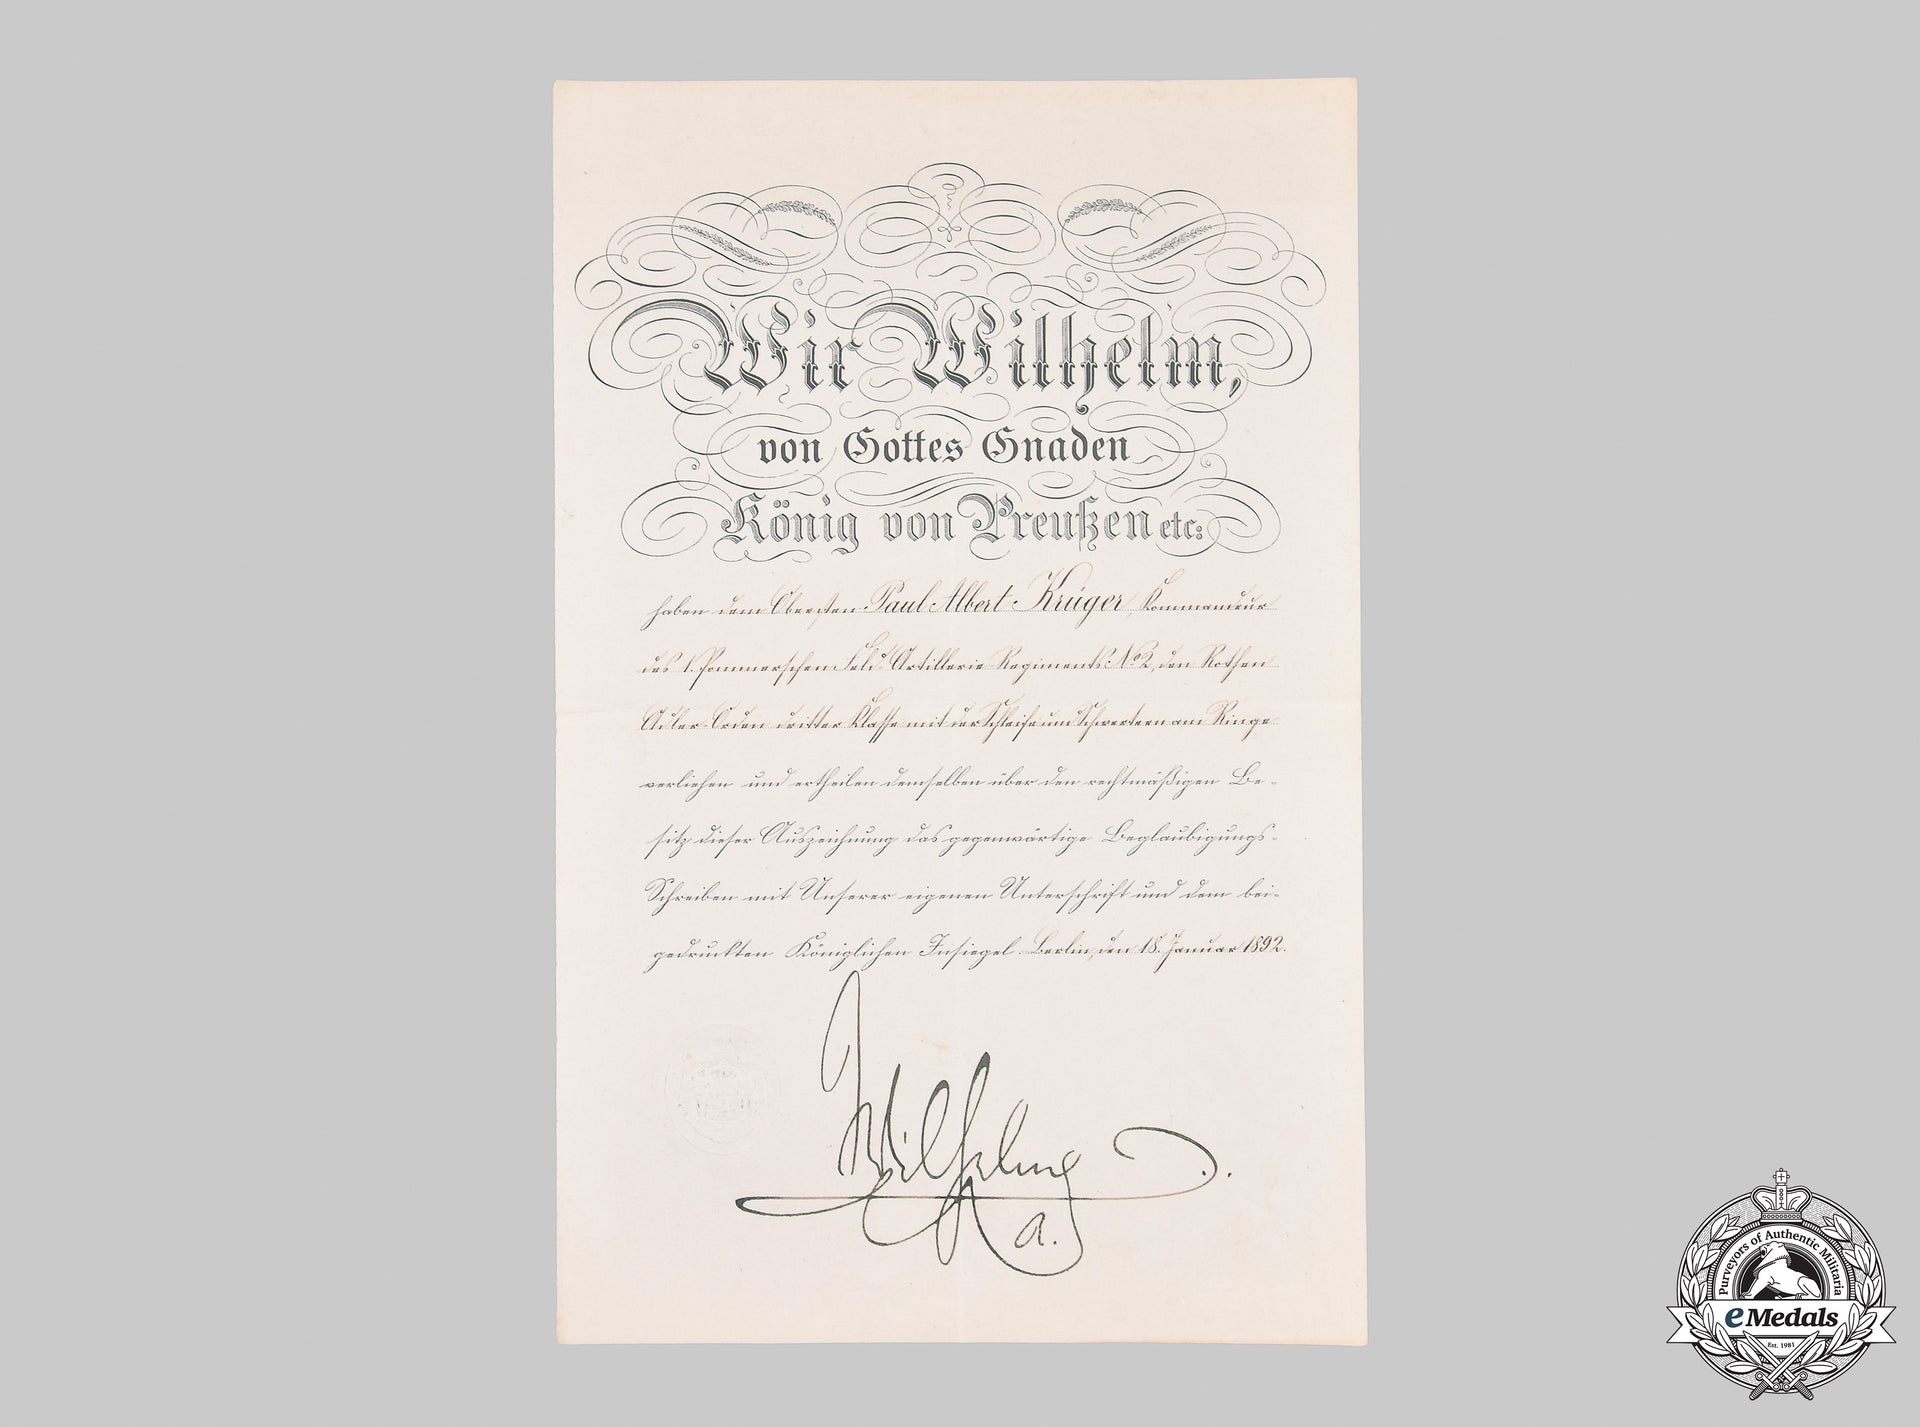 Wir Wilhelm,
von Gottes Gnaden
König von Preußen etc:
haben dem Obersten Paul Albert Krüger, Kommandeur
des 1. Pommerschen Feld-Artillerie-Regiments No 2, den Rothen
Adler-Orden dritter Klasse mit der Schleife und Schwertern am Ringe
verliehen und ertheilen demselben über den rechtmäßigen Be-
sitz dieser Auszeichnung das gegenwärtige Beglaubigungs-
Schreiben mit Unserer eigenen Unterschrift und dem bei-
gedruckten Königlichen Insiegel. Berlin, den 18. Januar 1892.
Wilhelm
R
Purveyors of Authentic Militaria
eMedals
Est. 1981